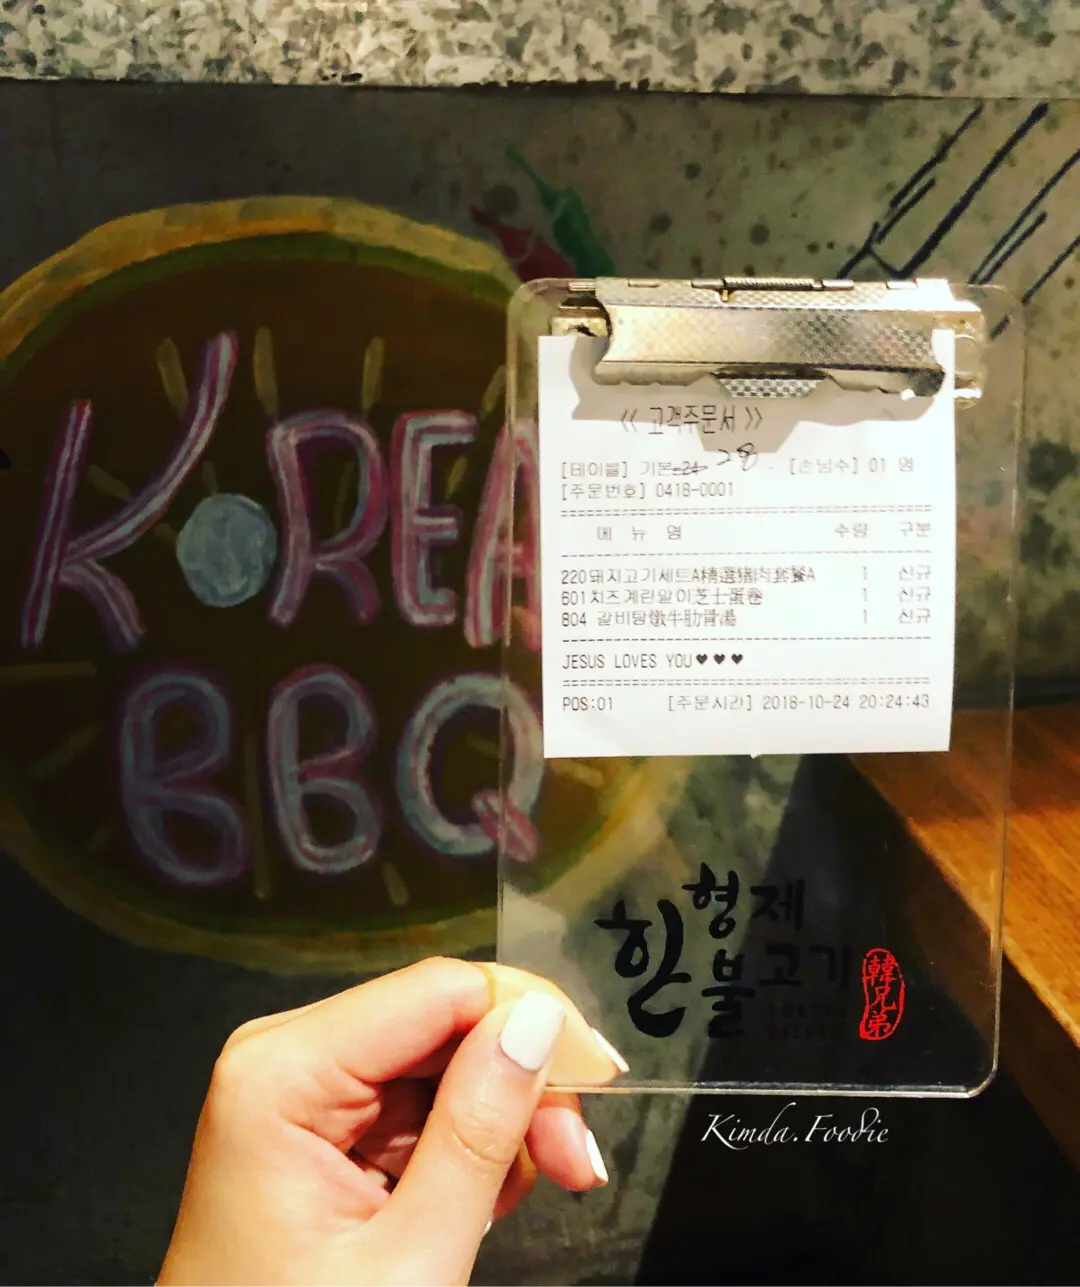 KOREA
BBQ
《 고객주문서 》
[테이블] 기본 24 28 [손님수] 01 명
[주문번호] 0418-0001
메 뉴 명 수량 구분
220돼지고기세트A精選豬肉套餐A 1 신규
601치즈계란말이芝士蛋卷 1 신규
804 갈비탕燉牛肋骨湯 1 신규
JESUS LOVES YOU♥♥♥
POS:01 [주문시간] 2018-10-24 20:24:43
한형제
불고기
韓兄弟
Kimda.Foodie